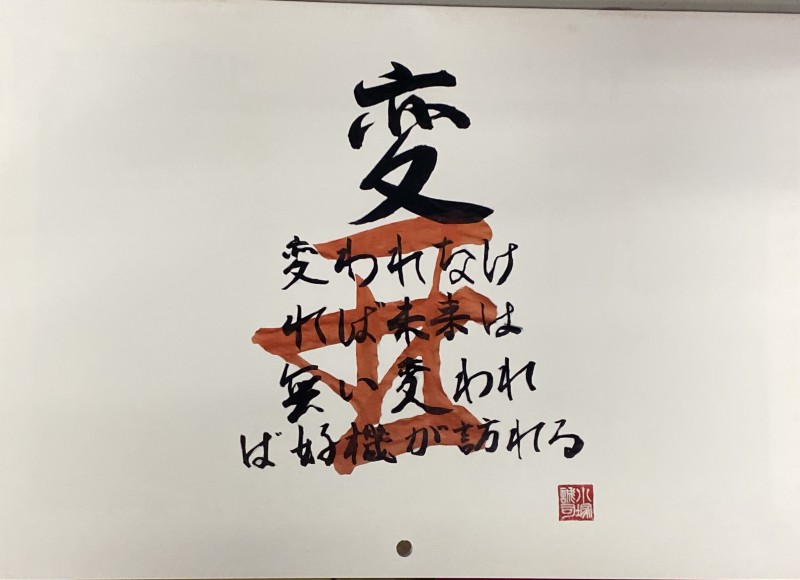 変
変われなけ
れば未来は
無い変われ
ば好機が訪れる
小塚
誠司